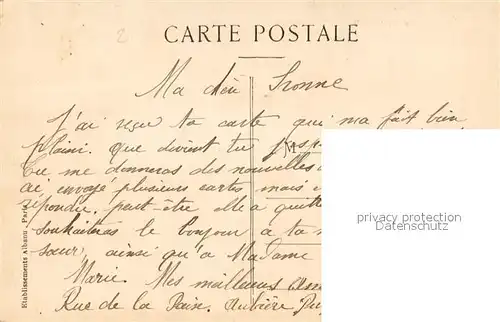 CARTE POSTALE
Ma chère Ivonne
J'ai reçu ta carte qui ma fait bien
plaisir. que divint tu
Tu me donneras des nouvelles
ai envoyé plusieurs cartes mais
répondre, peut-être elle a quitté
souhaiteras le bonjour à ta
sœur, ainsi qu'a Madame
Marie. Mes meilleures
Rue de la Paix. Aubière
Etablissements Album - Paris
privacy protection
Datenschutz